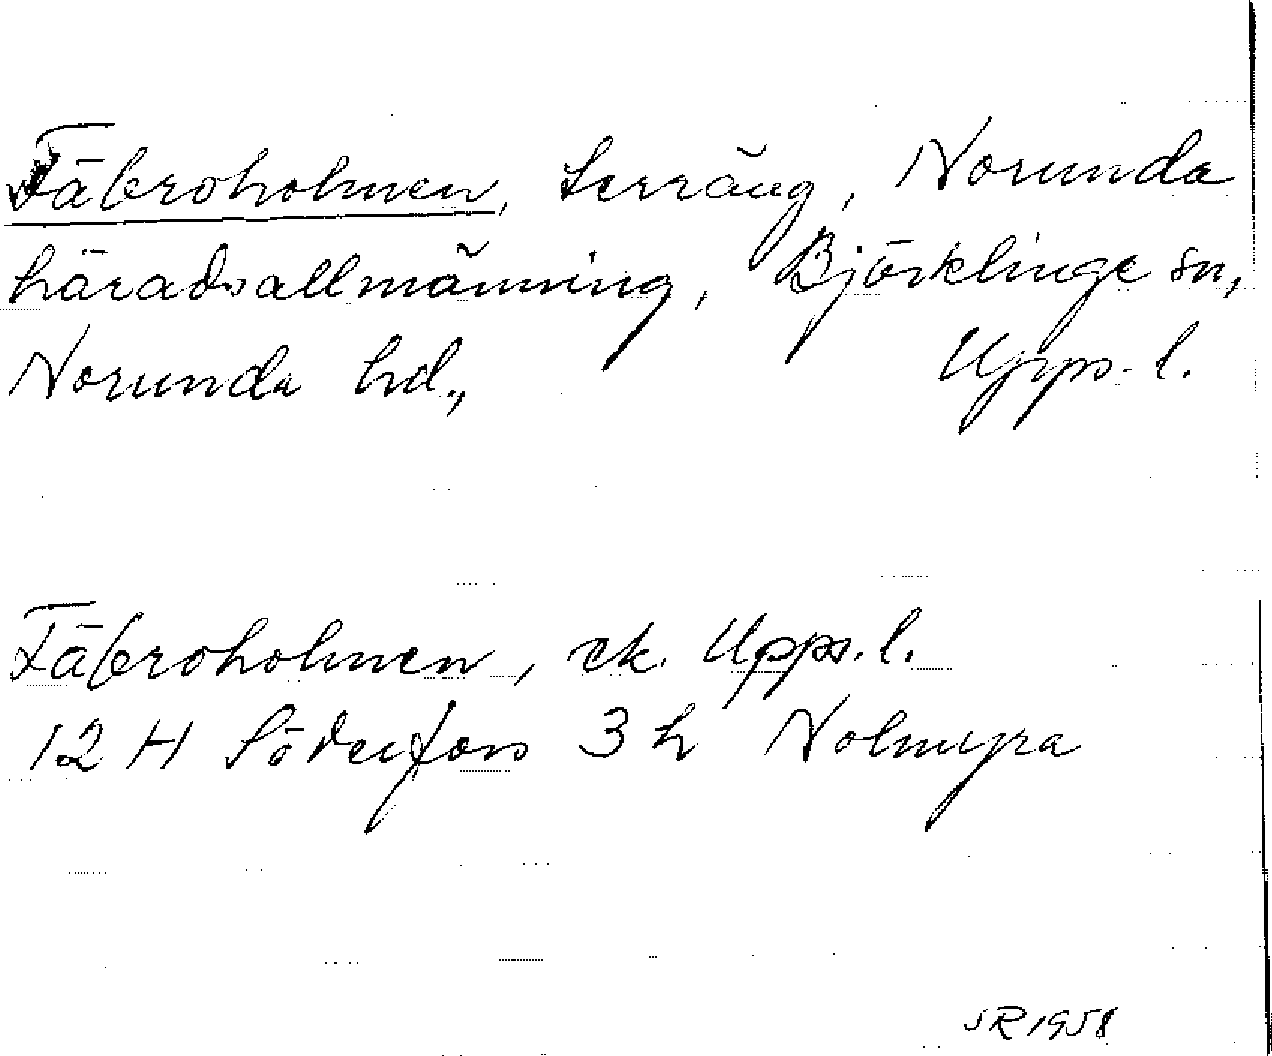 Fäbroholmen, terräng, Norunda
häradsallmänning, Björklinge sn,
Norunda hd., Upps. l.
Fäbroholmen, ek. Upps. l.
12 H Söderfors 3 h Nolmyra
SR 1958